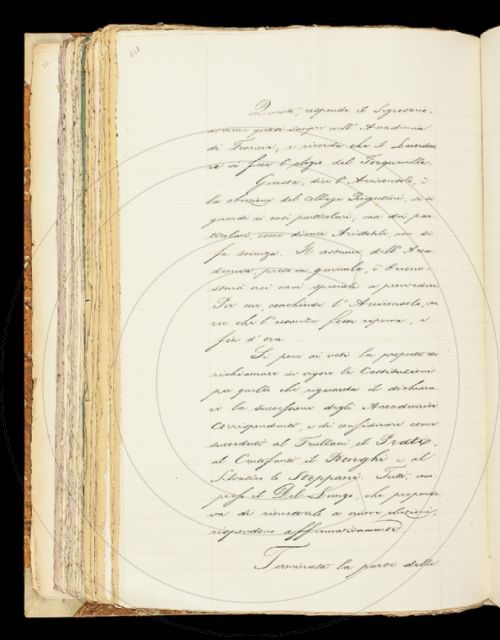 Questo, risponde il Segretario,
avviene quasi sempre nell' Accademia
di Francia, e ricorda che il Lacordai
re vi fece l'elogio del Tocqueville
Giusta, dice l'Arciconsolo, è
la obiezione del collega Rigutini, se si
guardi ai casi particolari, ma dei par
ticolari, come diceva Aristotile non si
fa scienza. Il costume dell' Acca
demia, preso in generale, è buono:
starà nei casi speciali a provvedere
Per me, conchiude l'Arciconsolo, vor
rei che l'usanza fosse ripresa, e
fin d'ora.
Si pone ai voti la proposta di
richiamare in vigore le Costituzioni
per quello che riguarda il dichiara
re la successione degli Accademici
Corrispondenti, e di considerare come
succeduti al Trullani il Prati,
al Centofanti il Bonghi e al
lo Stoppani. Tutti, meno
prof. il Del Lungo, che propone
va di rimetterlo a nuove elezioni,
rispondono affermativamente.
Terminata la parte delle